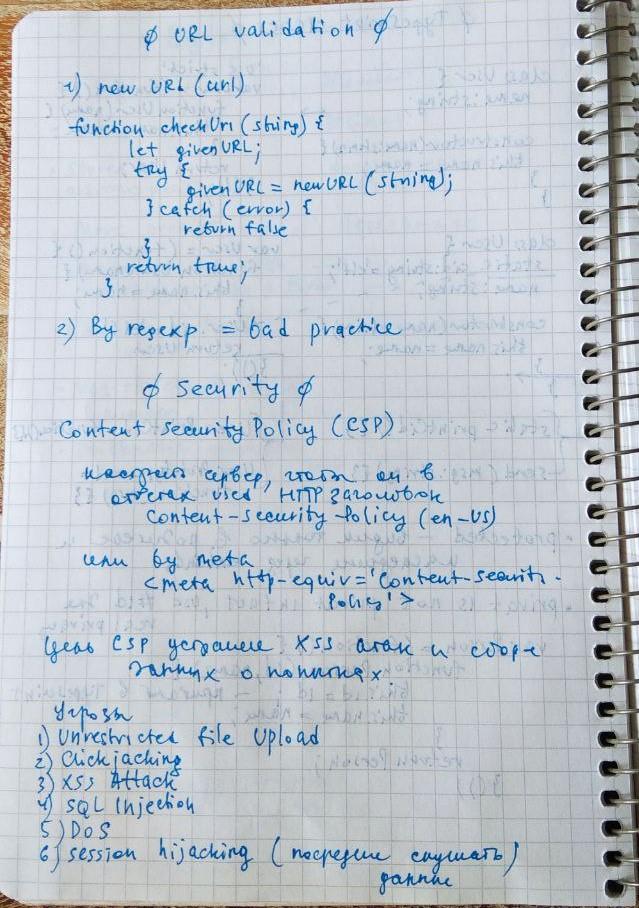 ∅ URL validation ∅
1) new URL (url)
function checkUrl (string) {
let givenURL;
try {
givenURL = new URL (string);
} catch (error) {
return false
}
return true;
}
2) By regexp = bad practice
∅ Security ∅
Content Security Policy (CSP)
настроить сервер, чтобы он в
ответах used HTTP заголовок
Content-Security-Policy (en-US)
или by meta
<meta http-equiv='Content-Securit-
Policy'>
Цель CSP устранение XSS атак и сборе
данных о попытках
Угрозы
1) Unrestricted file Upload
2) Clickjacking
3) XSS Attack
4) SQL Injection
5) DoS
6) session hijacking ( посредине слушать)
данные